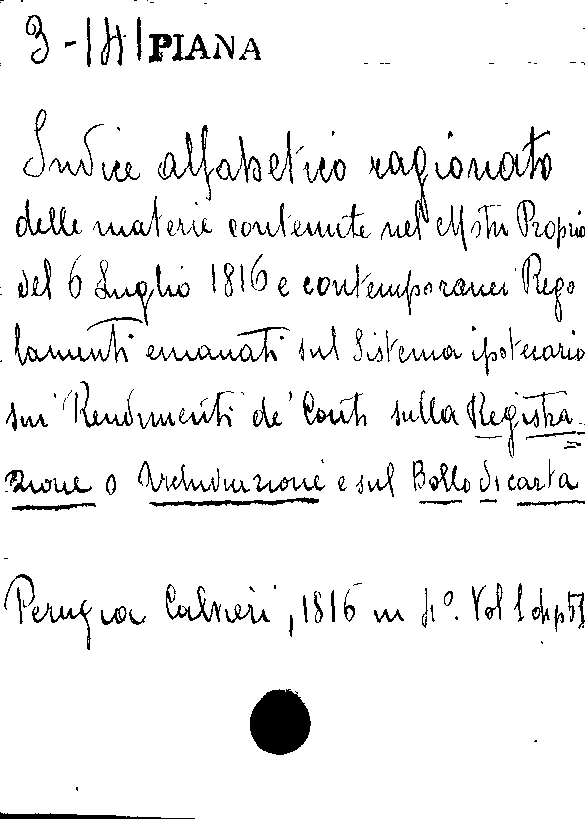 3-141 PIANA
Indice alfabetico ragionato
delle materie contenute nel Motu Proprio
del 6 Luglio 1816 e contemporanei Rego
lamenti emanati sul Sistema ipotecario
sui Rendimenti de' Conti sulla Registra
zione o Archiviazione e sul Bollo di carta
Perugia Calneri, 1816 in 4º. Vol 1 di p